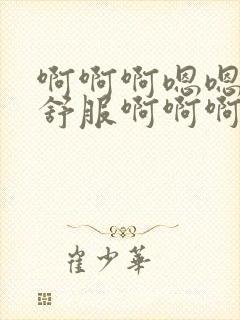 啊啊啊嗯嗯
舒服啊啊啊
崔少华